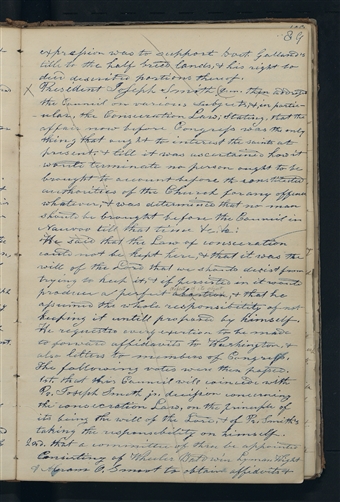 89
expression was to support Doct Galland's
title to the half breed lands, & his right to
deed described portions thereof.
President Joseph Smith Jun. then addressed
the Council on various subjects, & in particu-
ular, the Consecration Law; stating, that the
affair now before Congress was the only
thing that ought to interest the saints at
present; & till it was ascertained how it
would terminate no person ought to be
brought to account before the constituted
authorities of the Church for any offence
whatever, & was determined that no man
should be brought before the Council in
Nauvoo till that time &c. &c:
He said that the Law of consecration
could not be kept here, & that it was the
will of the Lord that we should desist from
trying to keep it, & if persisted in it would
produce a perfect abortion, & that he
assumed the whole responsibility of not
keeping it untill proposed by himself.
He requested every exertion to be made
to forward affidavits to Washington, &
also letters to members of Congress.
The following votes were then passed.
1st that this Council will coincide with
Pr. Joseph Smith jr. decision concerning
the consecration Law, on the principle of
its being the will of the Lord, & of Pr. Smith's
taking the responsibility on himself.
2ond. That a committee of three be appointed
Consisting of Wheeler Baldwin Lyman Wight
& Abraham O. Smoot to obtain affidavits &